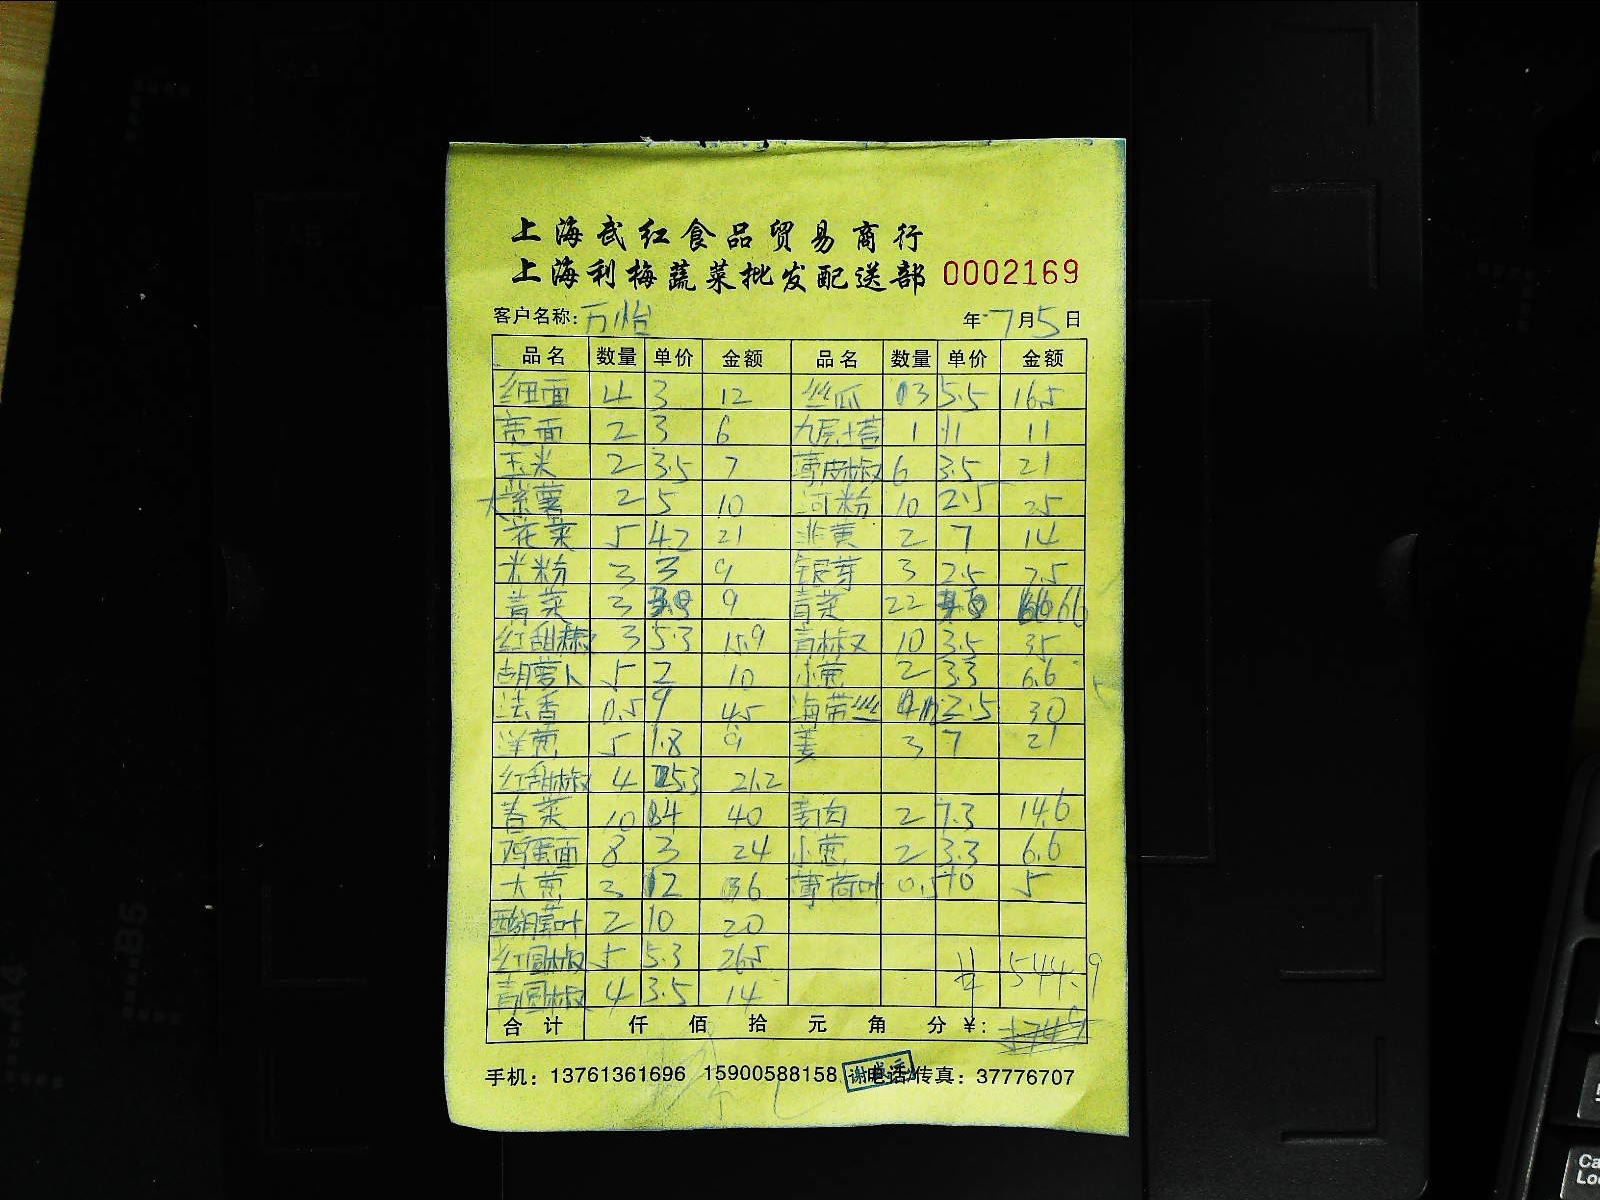 上海武红食品贸易商行
上海利梅蔬菜批发配送部 0002169
客户名称: 万怡 年 7月5日
品名 数量 单价 金额 品名 数量 单价 金额
细面 4 3 12 丝瓜 3 5.5 16.5
宽面 2 3 6 九层塔 1 11 11
玉米 2 3.5 7 薄皮椒 6 3.5 21
大紫薯 2 5 10 河粉 10 2.5 25
花菜 5 4.2 21 韭黄 2 7 14
米粉 3 3 9 银芽 3 2.5 7.5
青菜 3 9 青菜 22 66
红甜椒 3 5.3 15.9 青椒 10 3.5 35
胡萝卜 5 2 10 小葱 2 3.3 6.6
法香 0.5 9 4.5 海带丝 2.5 30
洋葱 5 1.8 9 姜 3 7 21
红甜椒 4 5.3 21.2
春菜 10 4 40 姜肉 2 7.3 14.6
鸡蛋面 8 3 24 小葱 2 3.3 6.6
大葱 3 12 36 薄荷叶 0.5 10 5
2 10 20
红圆椒 5 5.3 26.5
青圆椒 4 3.5 14 544.9
合计 仟 佰 拾 元 角 分 ¥:
手机: 13761361696 15900588158 电话/传真: 37776707
A4
B5
Ca
Loc